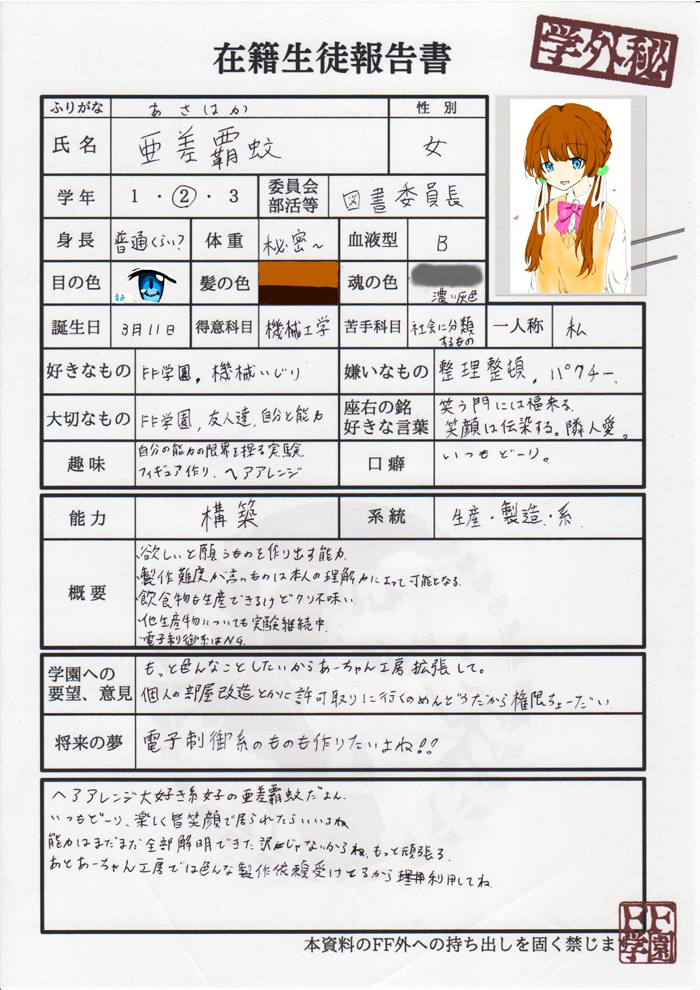 学外秘
在籍生徒報告書
ふりがな あさはか 性別
氏名 亜差覇蚊 女
学年 1・②・3 委員会 部活等 図書委員長
身長 普通くらい? 体重 秘密〜 血液型 B
目の色 青色 髪の色 魂の色 濃い灰色
誕生日 3月11日 得意科目 機械工学 苦手科目 社会に分類するもの 一人称 私
好きなもの FF学園,機械いじり 嫌いなもの 整理整頓,パクチー.
大切なもの FF学園,友人達,自分と能力 座右の銘 好きな言葉 笑う門には福来る.
笑顔は伝染する。隣人愛。
趣味 自分の能力の限界を探る実験
フィギュア作り,ヘアアレンジ 口癖 いつもどーり。
能力 構築 系統 生産・製造・系
概要 ・欲しいと願うものを作り出す能力.
・製作難度が高いものは本人の理解力によって可能となる.
・飲食物も生産できるけどクソ不味い.
・他生産物についても実験継続中.
・電子制御系はNG.
学園への 要望、意見 もっと色んなことしたいからあーちゃん工房拡張して。
個人の部屋改造とかに許可取りに行くのめんどうだから権限ちょーだい.
将来の夢 電子制御系のものも作りたいよね!!
ヘアアレンジ大好き系女子の亜差覇蚊だよん.
いつもどーり、楽しく皆笑顔で居られたらいいよね.
能力はまだまだ全部解明できた訳じゃないからね,もっと頑張る.
あとあーちゃん工房では色んな製作依頼受けてるから利用してね.
本資料のFF外への持ち出しを固く禁じます
FF学園